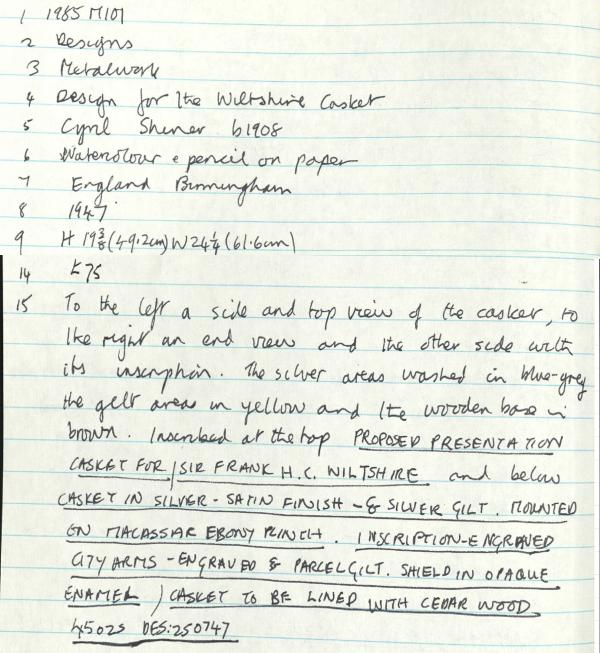 1 1985 M101
2 Designs
3 Metalwork
4 Design for the Wiltshire Casket
5 Cyril Shiner b1908
6 Watercolour & pencil on paper
7 England Birmingham
8 1947
9 H 19⅜ (49.2cm) W 24¼ (61.6cm)
14 £75
15 To the left a side and top view of the casket, to
the right an end view and the other side with
its inscription. The silver areas washed in blue-grey
the gilt areas in yellow and the wooden base in
brown. Inscribed at the top PROPOSED PRESENTATION
CASKET FOR / SIR FRANK H.C. WILTSHIRE and below
CASKET IN SILVER - SATIN FINISH - & SILVER GILT. MOUNTED
ON MACASSAR EBONY PLINTH. INSCRIPTION - ENGRAVED
CITY ARMS - ENGRAVED & PARCELGILT. SHIELD IN OPAQUE
ENAMEL / CASKET TO BE LINED WITH CEDAR WOOD
DES: 250747